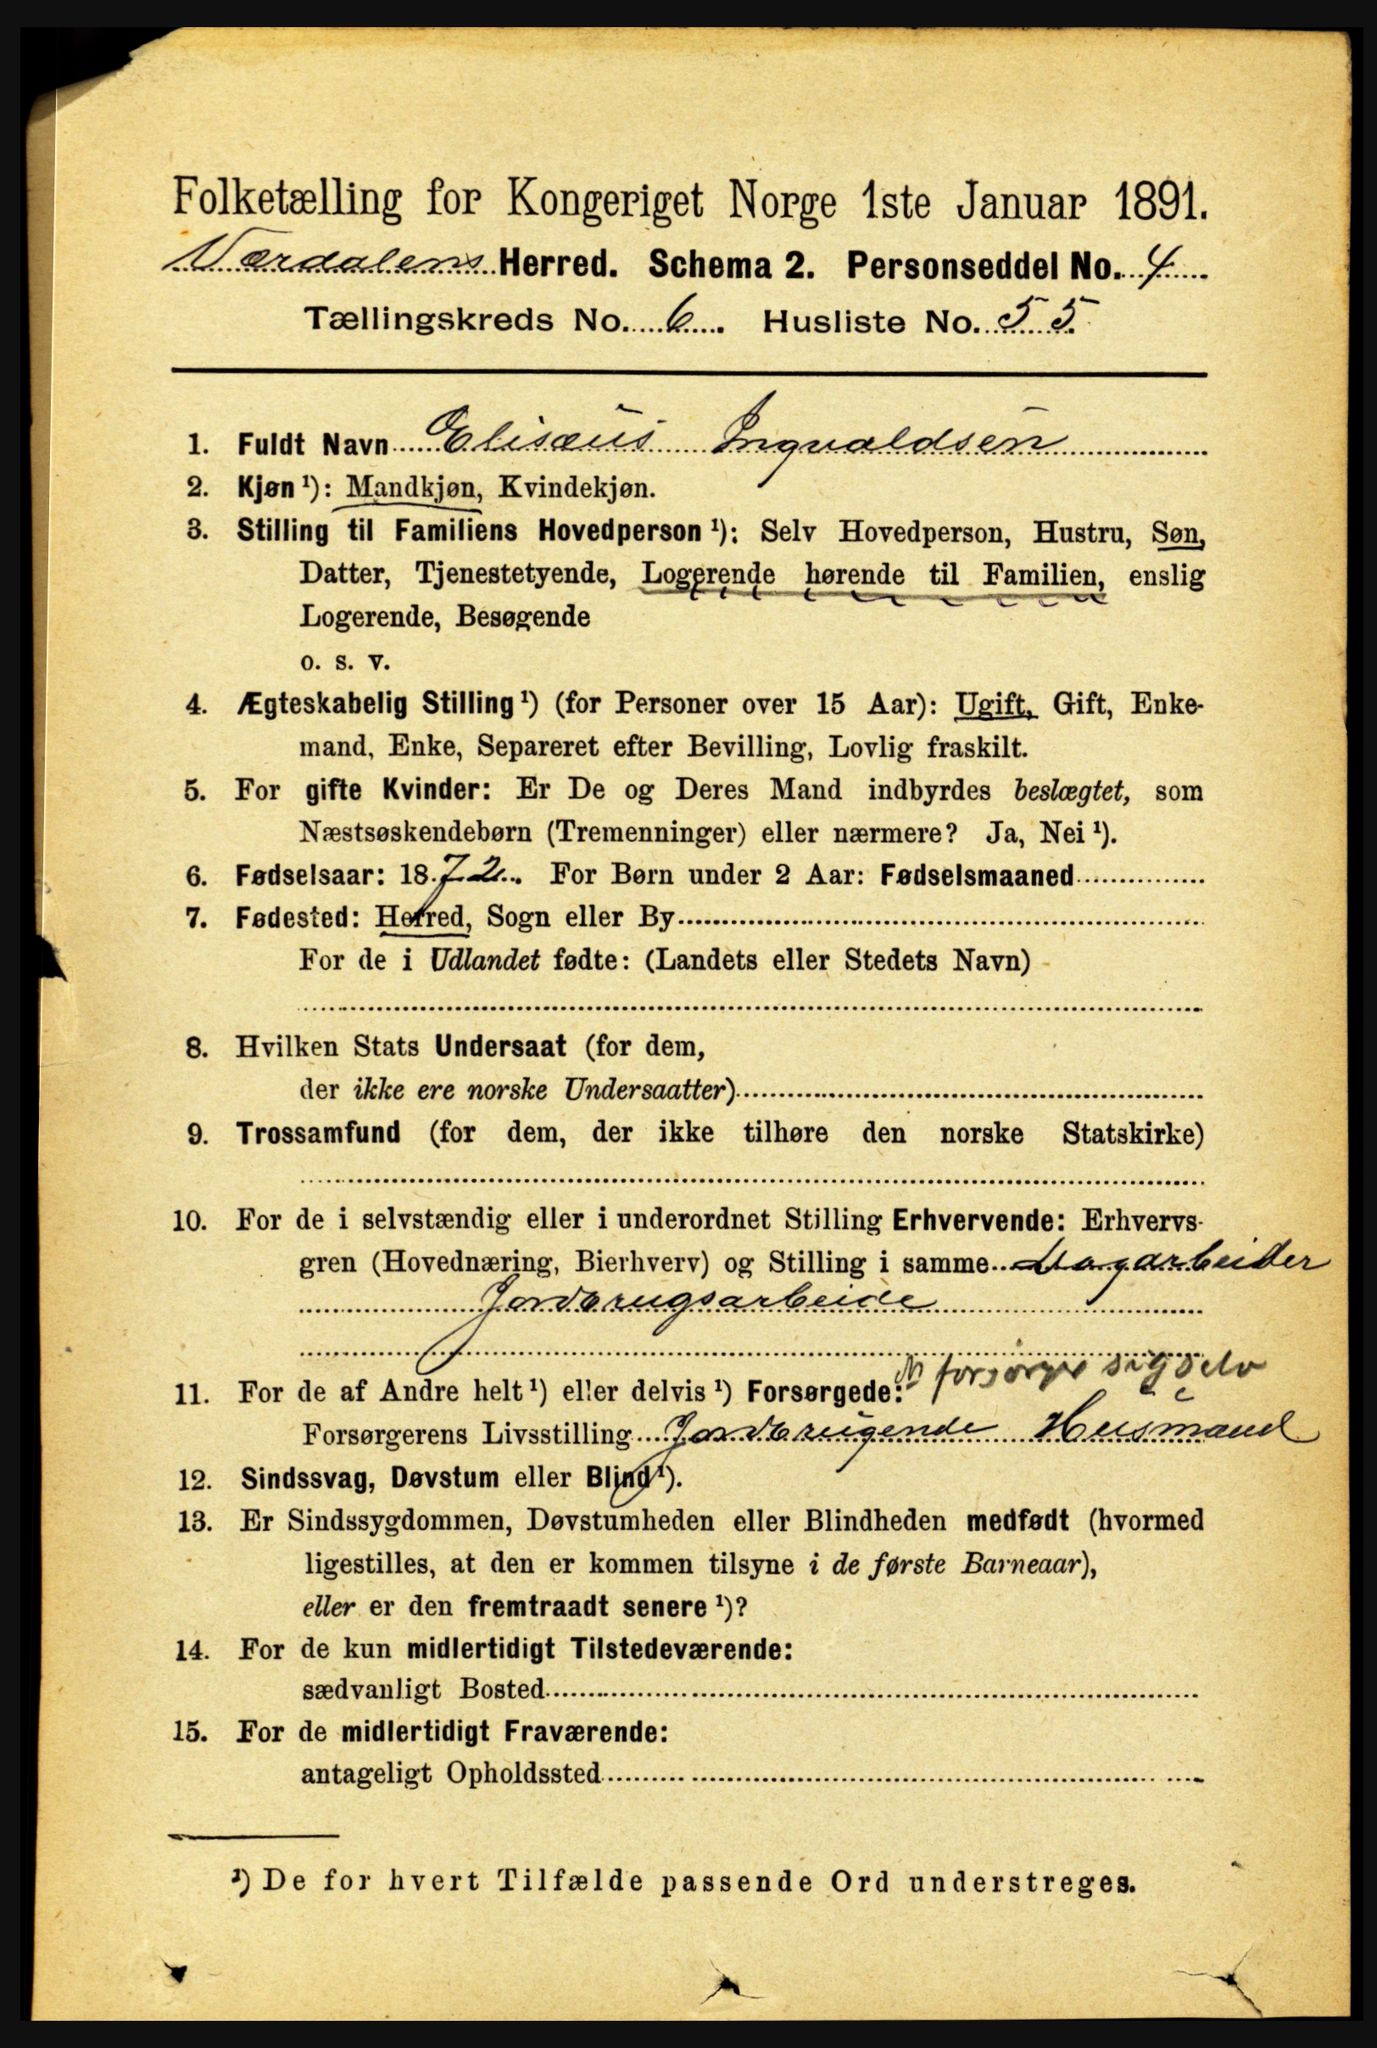 Folketælling for Kongeriget Norge 1ste Januar 1891.
Værdalens Herred. Schema 2. Personseddel No. 4
Tællingskreds No. 6. Husliste No. 55.
1. Fuldt Navn Elisæus Ingvaldsen
2. Kjøn ¹): Mandkjøn, Kvindekjøn.
3. Stilling til Familiens Hovedperson ¹): Selv Hovedperson, Hustru, Søn,
Datter, Tjenestetyende, Logerende hørende til Familien, enslig
Logerende, Besøgende
o. s. v.
4. Ægteskabelig Stilling ¹) (for Personer over 15 Aar): Ugift, Gift, Enke-
mand, Enke, Separeret efter Bevilling, Lovlig fraskilt.
5. For gifte Kvinder: Er De og Deres Mand indbyrdes beslægtet, som
Næstsøskendebørn (Tremenninger) eller nærmere? Ja, Nei ¹).
6. Fødselsaar: 1872. For Børn under 2 Aar: Fødselsmaaned
7. Fødested: Herred, Sogn eller By
For de i Udlandet fødte: (Landets eller Stedets Navn)
8. Hvilken Stats Undersaat (for dem,
der ikke ere norske Undersaatter)
9. Trossamfund (for dem, der ikke tilhøre den norske Statskirke)
10. For de i selvstændig eller i underordnet Stilling Erhvervende: Erhvervs-
gren (Hovednæring, Bierhverv) og Stilling i samme Dagarbeider
Jordbrugsarbeide
forsørger sig selv
11. For de af Andre helt ¹) eller delvis ¹) Forsørgede:
Forsørgerens Livsstilling Jordbrugende Husmand
12. Sindssvag, Døvstum eller Blind ¹).
13. Er Sindssygdommen, Døvstumheden eller Blindheden medfødt (hvormed
ligestilles, at den er kommen tilsyne i de første Barneaar),
eller er den fremtraadt senere ¹)?
14. For de kun midlertidigt Tilstedeværende:
sædvanligt Bosted
15. For de midlertidigt Fraværende:
antageligt Opholdssted
¹) De for hvert Tilfælde passende Ord understreges.